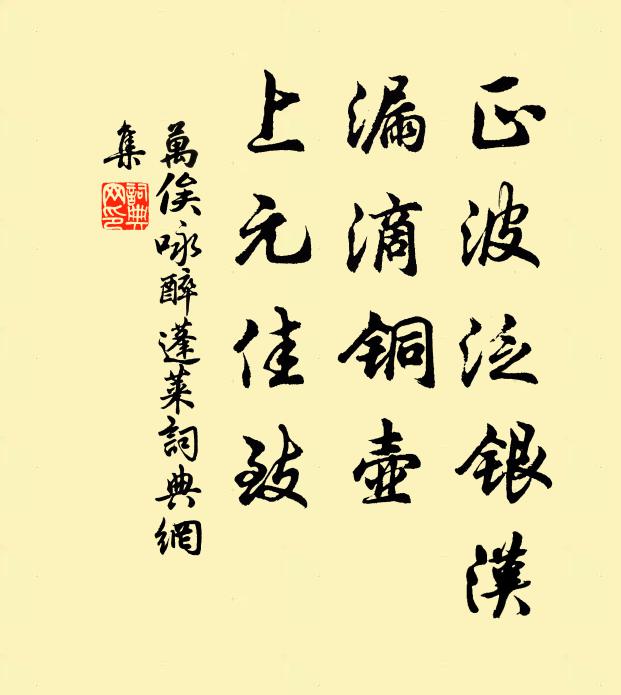 正波泛银汉
漏滴铜壶
上元佳致
萬俟咏醉蓬莱詞典網
集
詞典
网印